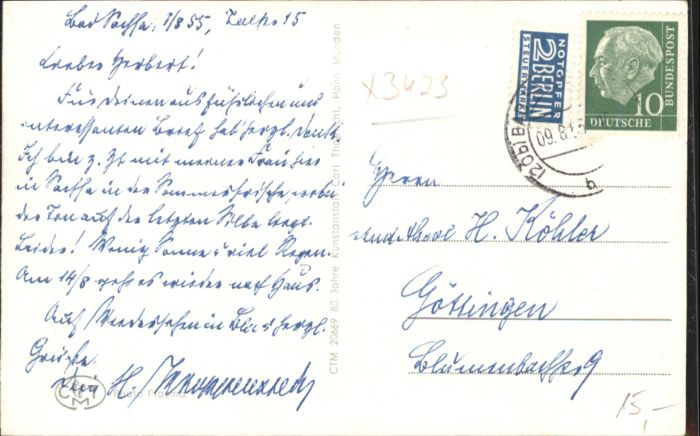 Bad Sachsa, 7/8 55,
Lieber Herbert!
Für deinen ausführlichen und
interessanten Brief hab herzl. Dank.
Ich bin z. Zt mit meiner Frau hier
in Sachsa in der Sommerfrische, wobei
der Ton auf der letzten Silbe liegt.
Leider! Wenig Sonne u. viel Regen.
Am 14/8 geht es wieder nach Haus.
Auf Wiedersehen in herzl.
Grüße.
Dein H.
CTM
CTM 20669 80 Jahre Kunstanstalt Carl Hann. Münden
X3423
NOTOPFER
2 BERLIN
STEUERMARKE
10
DEUTSCHE
BUNDESPOST
(20b) BA
09.8.
b
Herrn
H. Köhler
Göttingen
15,-